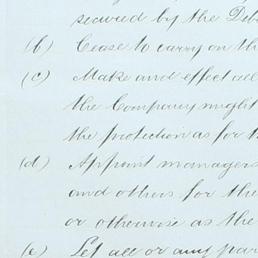 secured by the Deb
(b) Cease to carry on th
(c) Make and effect all
the Company might
the protection as for t
(d) Appoint managers
and others for the
or otherwise as the
(e) Let all or any par